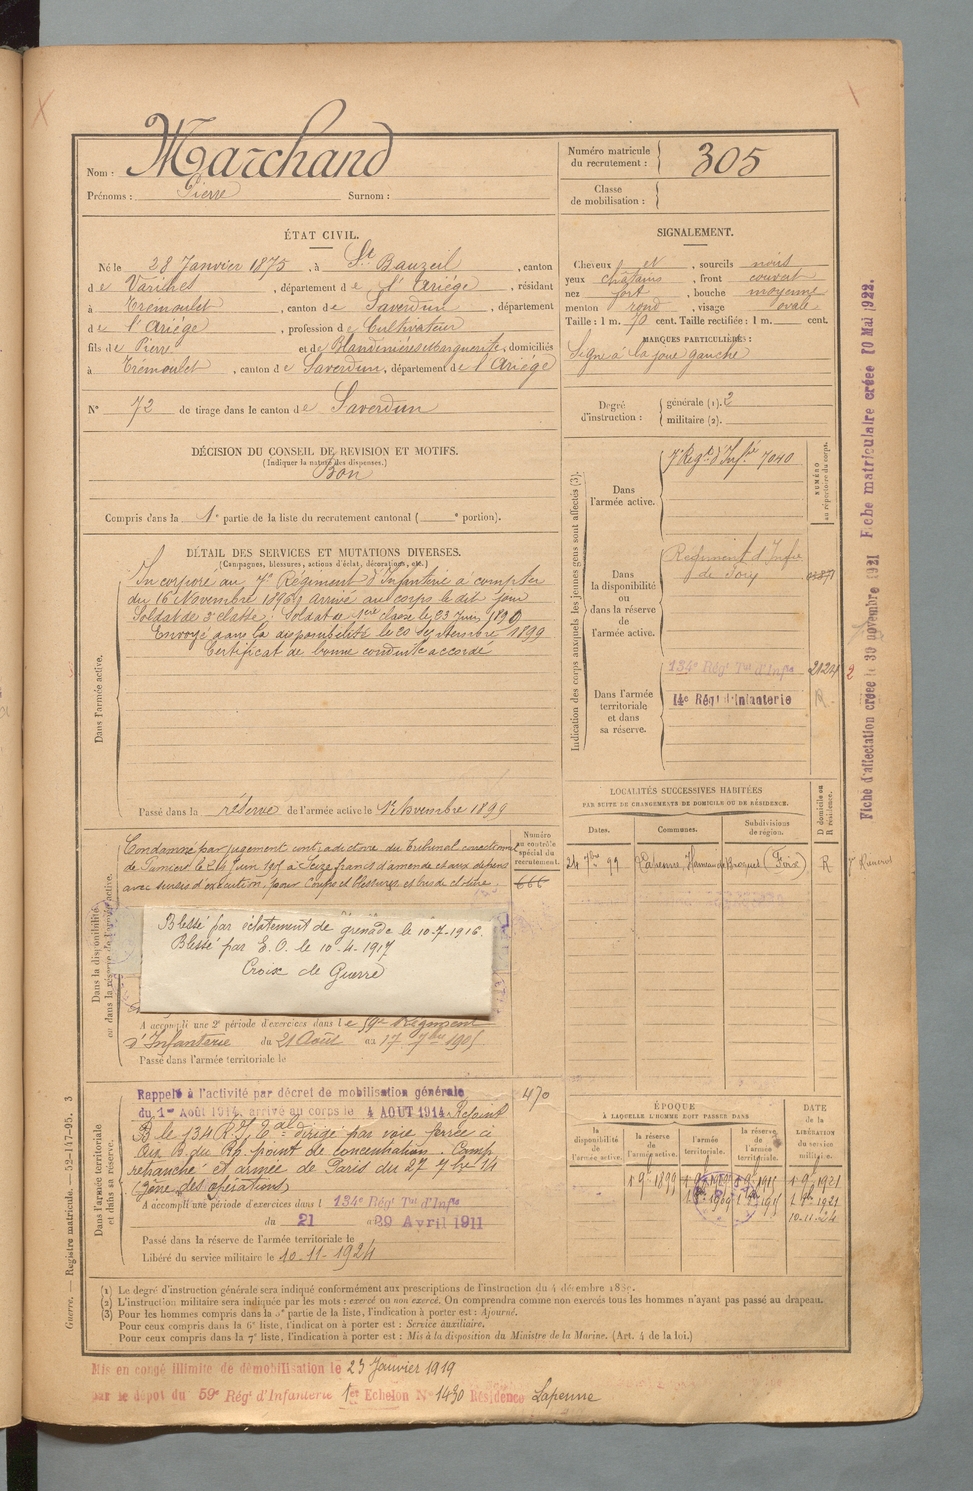 Nom : Marchand
Prénoms : Pierre Surnom :
Numéro matricule du recrutement : 305
Classe de mobilisation :
ÉTAT CIVIL.
Né le 28 Janvier 1875, à St Bauzeil, canton
de Varilhes, département de l'Ariège, résidant
à Trémoulet, canton de Saverdun, département
de l'Ariège, profession de Cultivateur
fils de Pierre et de Blandinières Marguerite, domiciliés
à Trémoulet, canton de Saverdun, département de l'Ariège
N° 72 de tirage dans le canton de Saverdun
SIGNALEMENT.
Cheveux et, sourcils noirs
yeux châtains, front couvert
nez fort, bouche moyenne
menton rond, visage ovale
Taille : 1 m. 70 cent. Taille rectifiée : 1 m. cent.
MARQUES PARTICULIÈRES :
Signe à la joue gauche
Degré d'instruction : générale (1). 2
militaire (2).
DÉCISION DU CONSEIL DE REVISION ET MOTIFS.
(Indiquer la nature des dispenses.)
Bon
Compris dans la 1e partie de la liste du recrutement cantonal ( e portion).
DÉTAIL DES SERVICES ET MUTATIONS DIVERSES.
(Campagnes, blessures, actions d'éclat, décorations, etc.)
Dans l'armée active.
Incorporé au 7e Régiment d'Infanterie à compter
du 16 Novembre 1896, arrivé au corps le dit jour
Soldat de 2e classe. Soldat de 1ère classe le 23 Juin 1899
Envoyé dans la disponibilité le 20 Septembre 1899
Certificat de bonne conduite accordé
Passé dans la réserve de l'armée active le 1r Novembre 1899
Indication des corps auxquels les jeunes gens sont affectés (3).
NUMÉRO au répertoire du corps.
Dans l'armée active.
7e Régt d'Infie 7040
Dans la disponibilité ou dans la réserve de l'armée active.
Régiment d'Infie
de Foix
Dans l'armée territoriale et dans sa réserve.
134e Régt Tal d'Infie 2124
14e Régt d'Infanterie R
LOCALITÉS SUCCESSIVES HABITÉES
PAR SUITE DE CHANGEMENTS DE DOMICILE OU DE RÉSIDENCE.
D domicile ou R résidence.
Dates. Communes. Subdivisions de région.
24 7bre 99 Lapenne, Hameau de Broquel (Foix) R
Dans la disponibilité ou dans la réserve de l'armée active.
Numéro au contrôle spécial du recrutement.
666
Condamné par jugement contradictoire du Tribunal correctionnel
de Pamiers le 24 Juin 1905 à Seize francs d'amende et aux dépens
avec sursis d'exécution, pour Coups et blessures et bris de clôture.
Blessé par éclatement de grenade le 10-7-1916.
Blessé par E. O. le 10-4-1917
Croix de Guerre
A accompli une 2e période d'exercices dans le 59e Régiment
d'Infanterie du 21 Août au 17 7bre 1905
Passé dans l'armée territoriale le
Dans l'armée territoriale et dans sa réserve.
Rappelé à l'activité par décret de mobilisation générale 470
du 1er Août 1914, arrivé au corps le 4 AOUT 1914. Rejoint
B le 134 R.I.Tal dirigé par voie ferrée à
Aix B. du Rh. point de concentration. Camp
retranché et armée de Paris du 27 7bre 14
(Zône des opérations)
A accompli une période d'exercices dans l 134e Régt Tal d'Infie
du 21 au 29 Avril 1911
Passé dans la réserve de l'armée territoriale le
Libéré du service militaire le 10-11-1924
ÉPOQUE
À LAQUELLE L'HOMME DOIT PASSER DANS
la disponibilité de l'armée active.
la réserve de l'armée active.
l'armée territoriale.
la réserve de l'armée territoriale.
DATE de la LIBÉRATION du service militaire.
10-11-24
(1) Le degré d'instruction générale sera indiqué conformément aux prescriptions de l'instruction du 4 décembre 1889.
(2) L'instruction militaire sera indiquée par les mots : exercé ou non exercé. On comprendra comme non exercés tous les hommes n'ayant pas passé au drapeau.
(3) Pour les hommes compris dans la 5e partie de la liste, l'indication à porter est : Ajourné.
Pour ceux compris dans la 6e liste, l'indication à porter est : Service auxiliaire.
Pour ceux compris dans la 7e liste, l'indication à porter est : Mis à la disposition du Ministre de la Marine. (Art. 4 de la loi.)
Mis en congé illimité de démobilisation le 23 Janvier 1919
par le dépôt du 59e Régt d'Infanterie 1er Echelon N° 1430 Résidence Lapenne
Guerre. — Registre matricule. — 52-147-95. 3
Fiche d'affectation créée le 30 novembre 1921 Fiche matriculaire créée 10 Mai 1922.